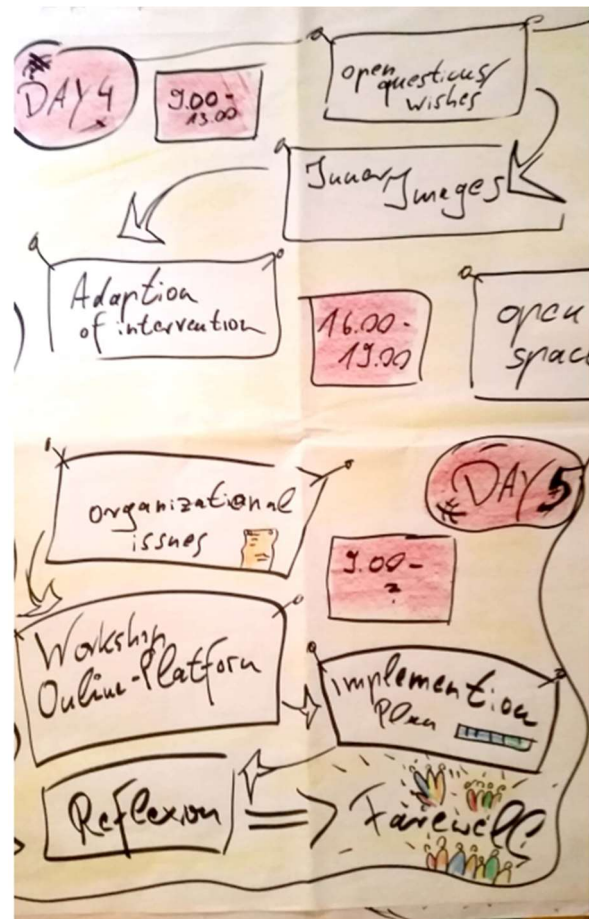 DAY 4
9.00-
13.00
open
questions/
wishes
Inner Images
Adaption
of intervention
16.00-
19.00
open
space
organizational
issues
DAY 5
9.00-
?
Workshop
Online-Platform
implemention
Plan
Reflexion
Farewell